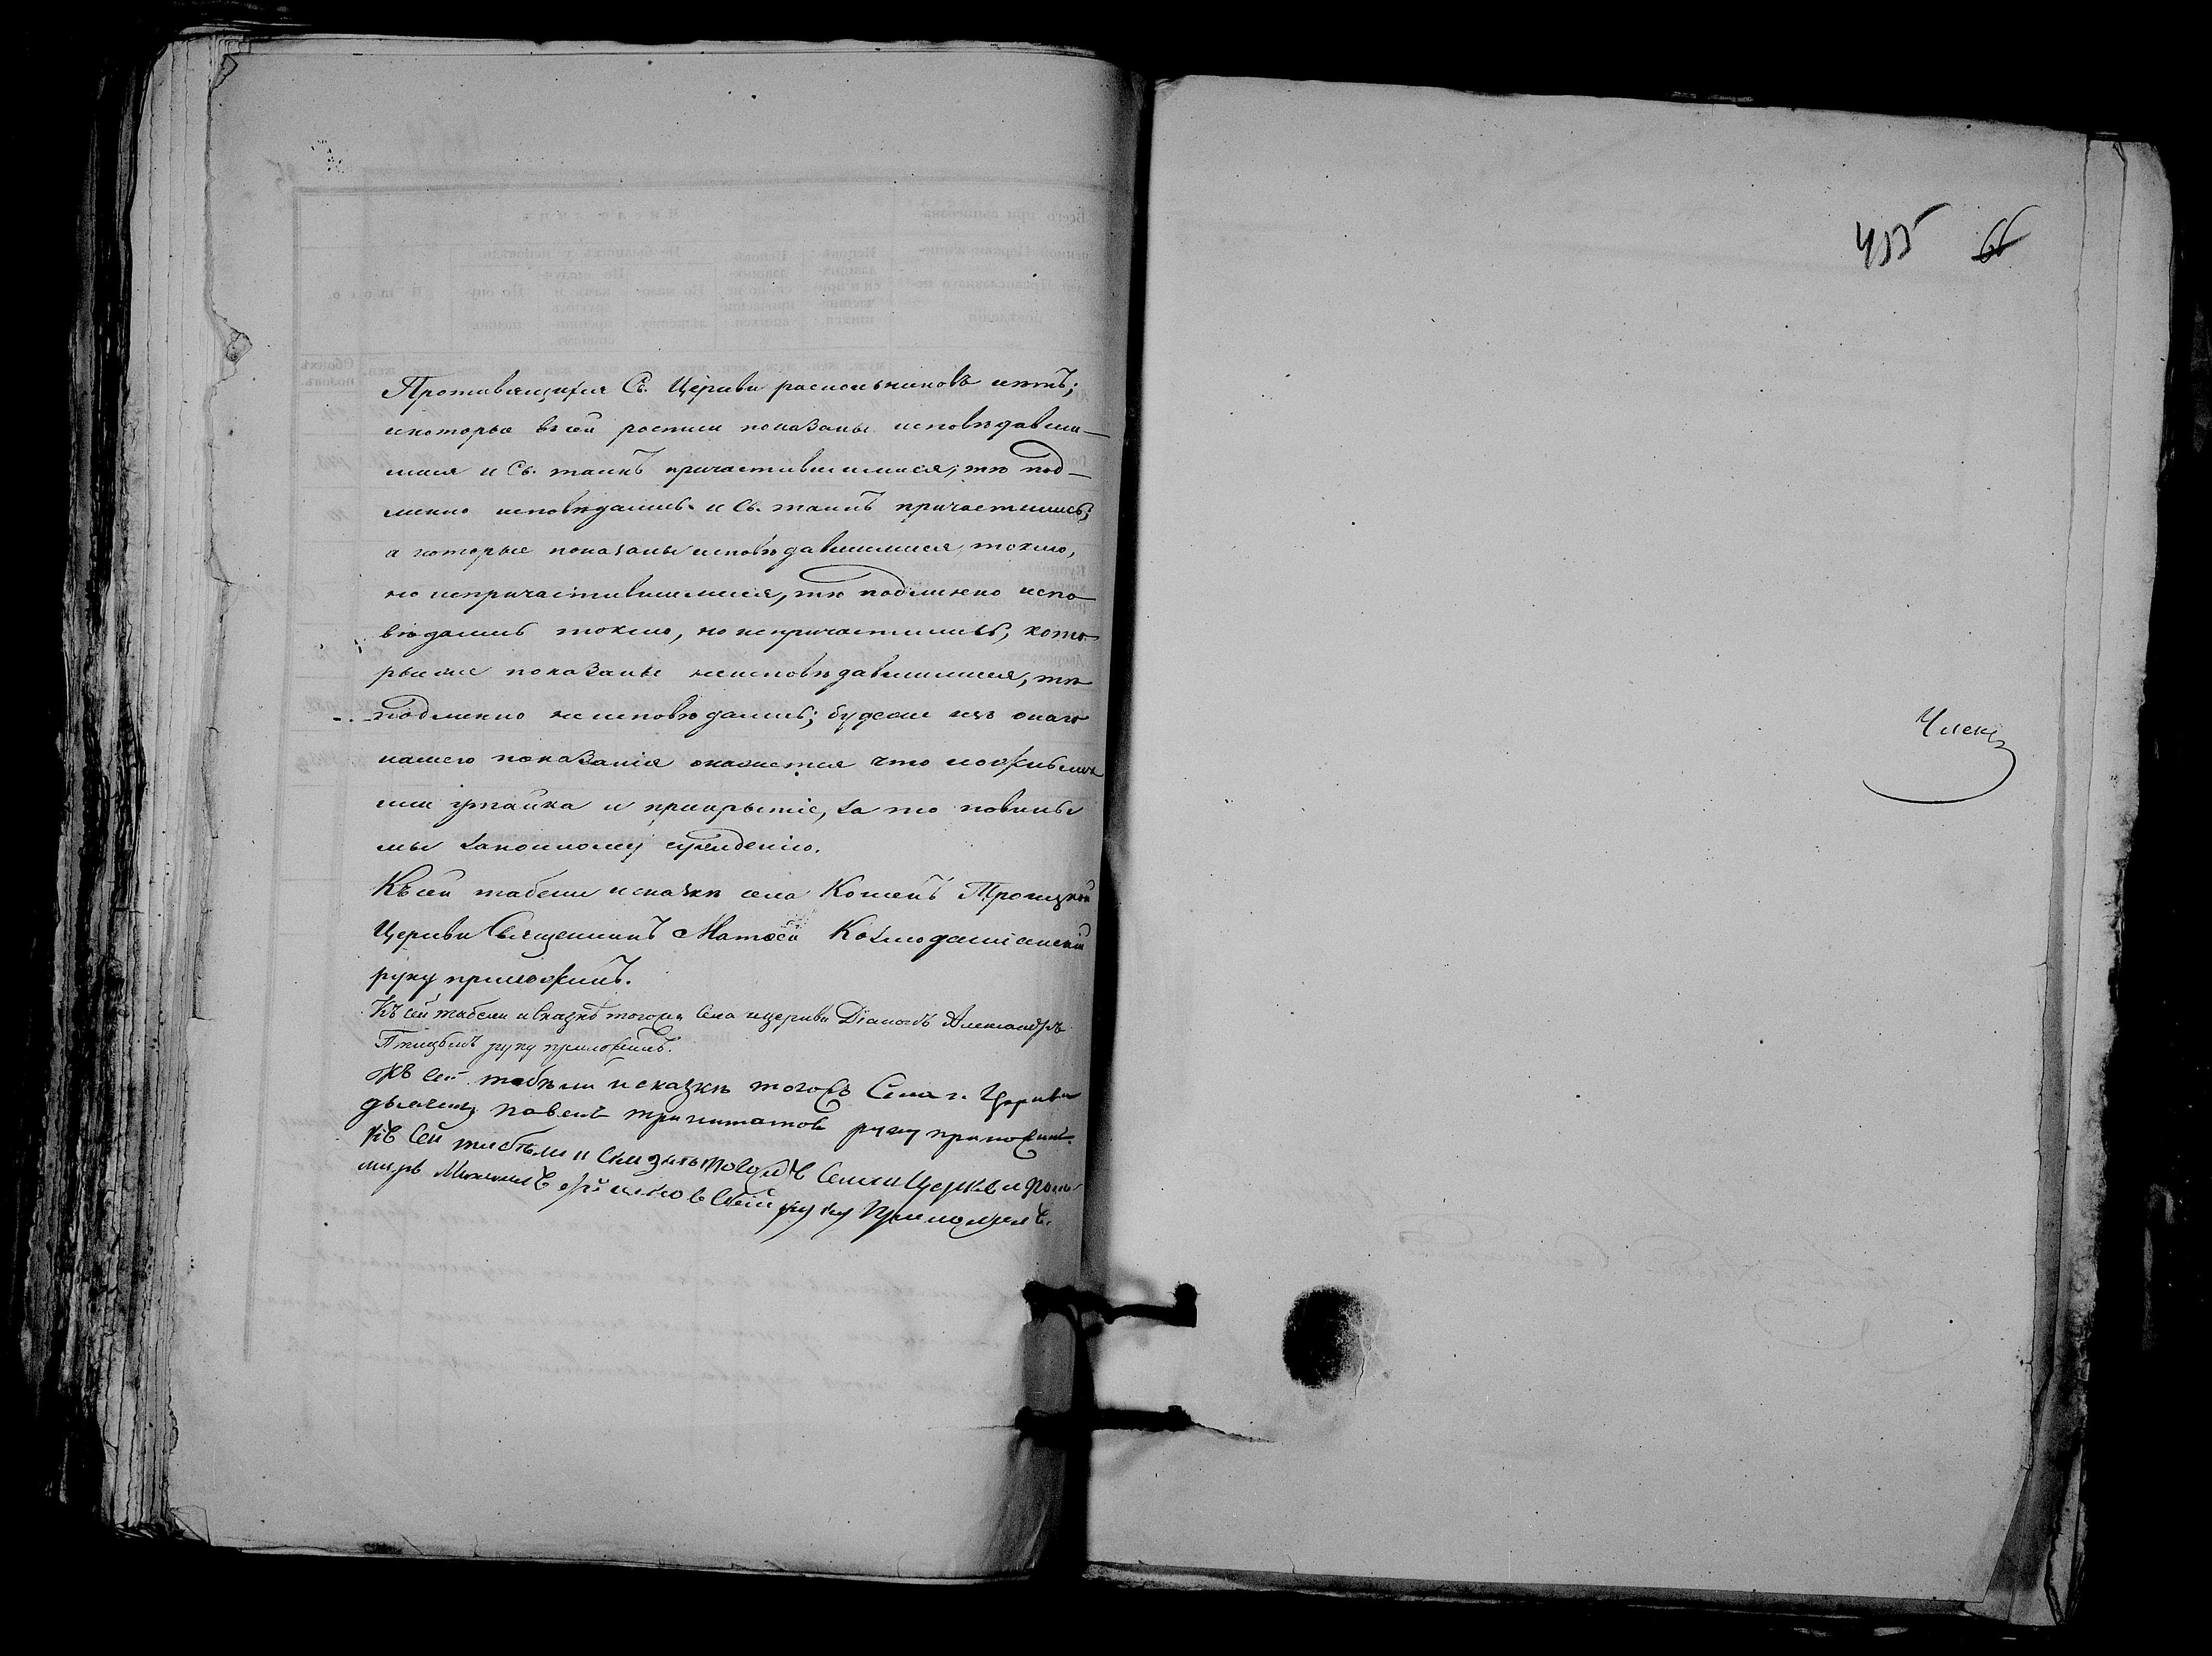 Противящихся Св. Церкви раскольниковъ нѣтъ;
и которые въ сей росписи показаны исповѣдавши-
мися и Св. таинъ причастившимися, тѣ под-
линно исповѣдались и Св. таинъ причастились,
а которые показаны исповѣдавшимися токмо,
но непричастившимися, тѣ подлинно испо-
вѣдались токмо, но непричастились, кото-
рые же показаны неисповѣдавшимися, тѣ
подлинно неисповѣдались; будеже изъ онаго
нашего показанія окажется что ложь
или утайка и прикрытіе, за то повинны
мы законному сужденію.
Къ сей табели и сказкѣ села Троицкой
Церкви Священникъ Матѳей Козмодаміанскій
руку приложилъ.
Къ сей табели и сказкѣ тогожъ села и церкви Діаконъ Александръ
Птицынъ руку приложилъ.
Къ сей табѣли и сказкѣ тогожъ Села и Церкви
дьячекъ павелъ руку приложилъ.
Къ сей табѣли и сказкѣ тогожъ Села и Церкви поно-
марь руку Приложилъ.
455 66